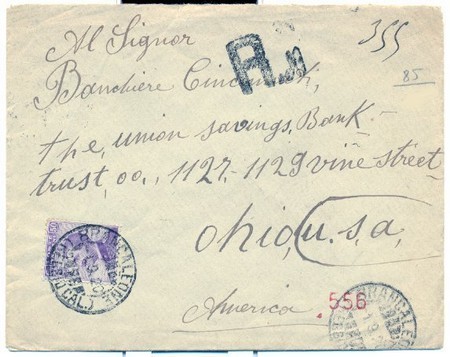 Al Signor
R
355
85
Banchiere Cincinnati,
the, union savings, Bank.-
trust, oo., 1127,-1129 vine street
ohio, u.s,a,
America
556
BRANCALEONE
BRANCALEONE